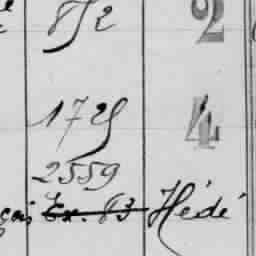 852 2
1725 4
2559
çais Ex. 83 Hédé